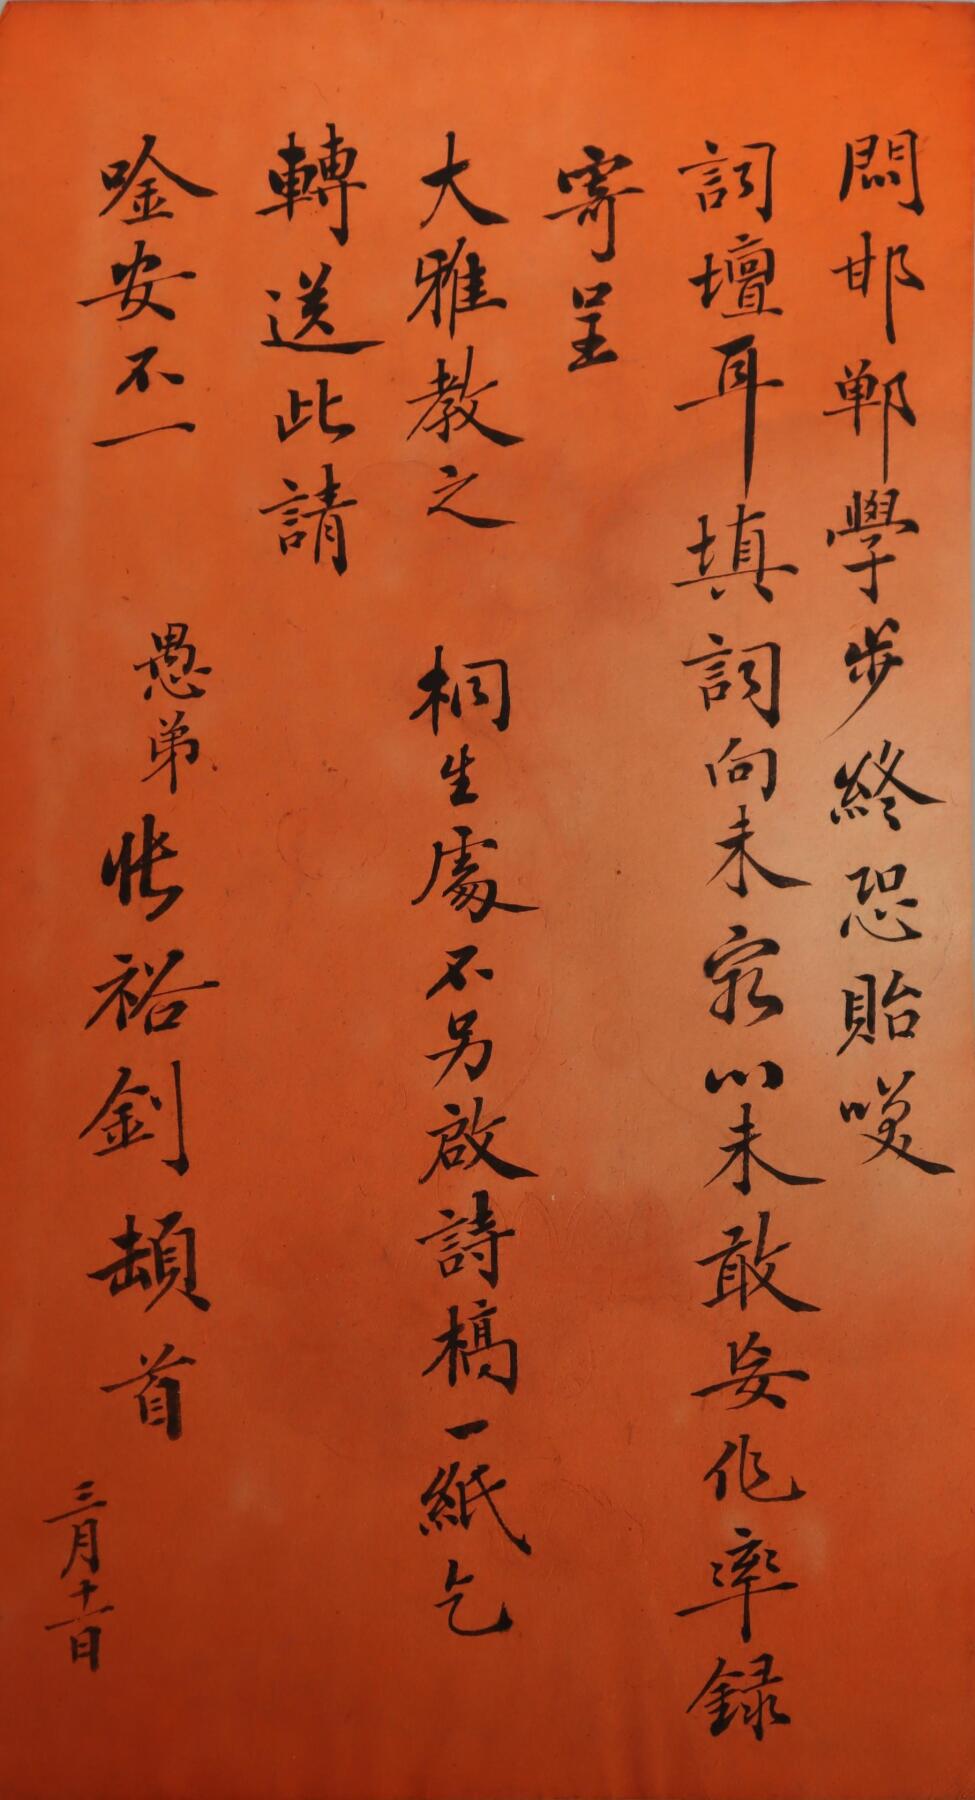 問邯鄲學步終恐貽笑
詞壇耳填詞向未家以未敢妄作率録
寄呈
大雅教之 桐生處不另啟詩槁一紙乞
轉送此請
唫安不一 愚弟張裕釗頓首 三月十一日